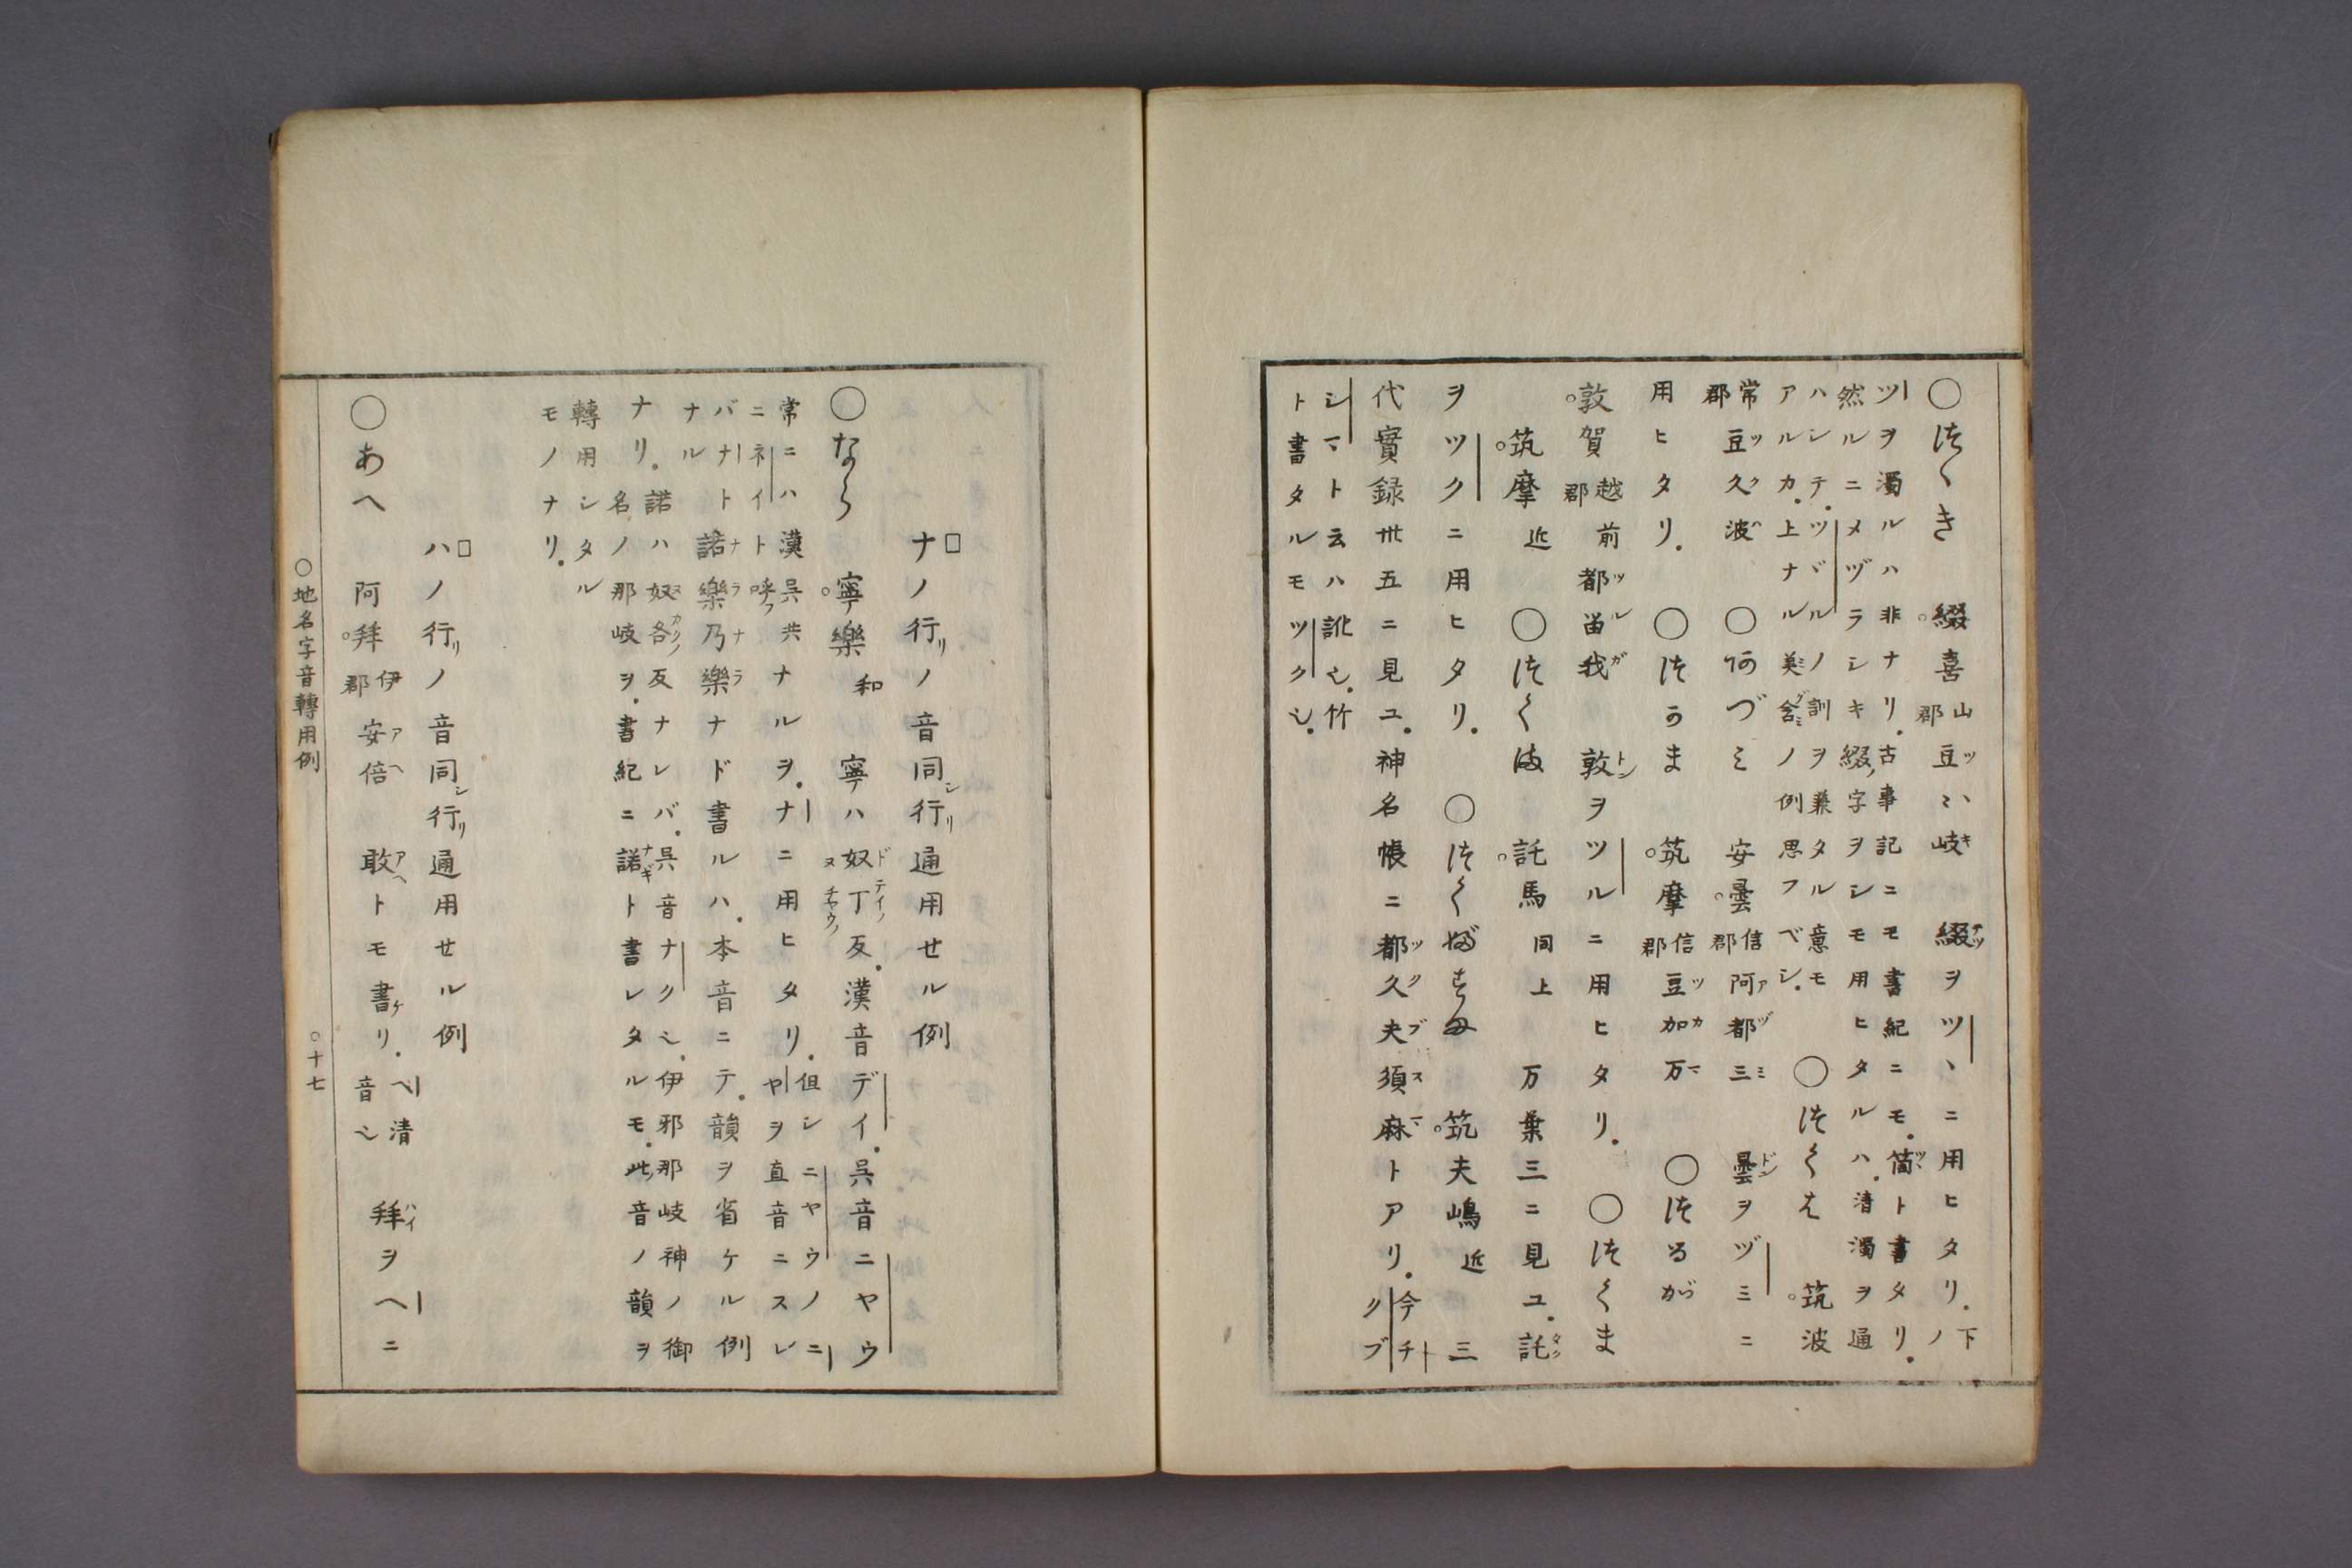 ○つゝき 綴喜 山郡 豆ツヽ岐キ 綴テツヲツヽニ用ヒタリ. 下ノ
ツヲ濁ルハ非ナリ. 古事記ニモ書紀ニモ. 筒ツヽト書タリ.
然ルニメヅラシキ綴ノ字ヲシモ用ヒタルハ. 清濁ヲ通
ハシテ. ツヾルノ訓ヲ兼タル意モ
アルカ. 上ナル美ミ含グミノ例思フベシ. ○つくは 筑波
常郡 豆ツ久ク波ハ ○あづミ 安曇 信郡 阿ア都ヅ三ミ 曇ドンヲヅミニ
用ヒタリ. ○つかま 筑摩 信郡 豆ツ加カ万マ ○つるが
敦賀 越前郡 都ツ留ル我ガ 敦トンヲツルニ用ヒタリ. ○つくま
筑摩 近 ○つくま 託馬 同上 万葉三ニ見ユ. 託タク
ヲツクニ用ヒタリ. ○つくぶすま 筑夫嶋 近 三
代實録卅五ニ見ユ. 神名帳ニ都ツ久ク夫ブ須ス麻マトアリ. 今チクブ
シマト云ハ訛也. 竹
ト書タルモツク也.
ナノ行リノ音同シ行リ通用せル例
○なら 寧樂 和 寧ハ奴ドヌ丁テイノチヤウノ反. 漢音デイ. 呉音ニヤウ
常ニハ漢呉共ナルヲ. ナニ用ヒタリ. 但シニヤウノニ
ニネイト呼フ ヤヲ直音ニスレ
バナト
ナル 諾ナ樂ラ乃ナ樂ラナド書ルハ. 本音ニテ. 韻ヲ省ケル例
ナリ. 諾ハ奴ヌ各カクノ反ナレバ. 呉音ナク也. 伊邪那岐神ノ御
名ノ那岐ヲ. 書紀ニ諾ナギト書レタルモ. 此ノ音ノ韻ヲ
轉用シタル
モノナリ.
ハノ行リノ音同シ行リ通用せル例
○あへ 阿拜 伊郡 安ア倍ヘ 敢アヘトモ書ケリ. ヘ清音也 拜ハイヲヘニ
○地名字音轉用例 ○十七